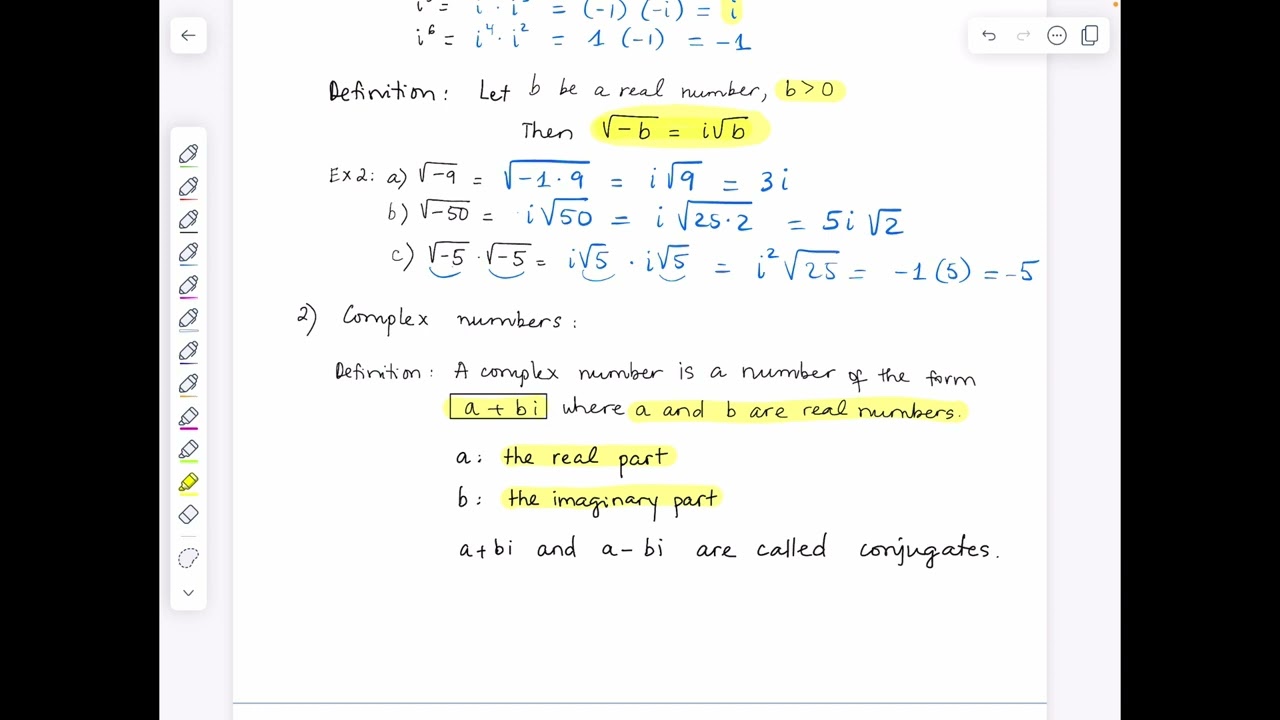 = i · = (-1) (-i) = i
i⁶ = i⁴ · i² = 1 (-1) = -1
Definition: Let b be a real number, b > 0
Then √-b = i√b
Ex 2: a) √-9 = √-1·9 = i√9 = 3i
b) √-50 = i√50 = i√25·2 = 5i√2
c) √-5 · √-5 = i√5 · i√5 = i²√25 = -1(5) = -5
2) Complex numbers:
Definition: A complex number is a number of the form
a + bi where a and b are real numbers.
a: the real part
b: the imaginary part
a+bi and a-bi are called conjugates.